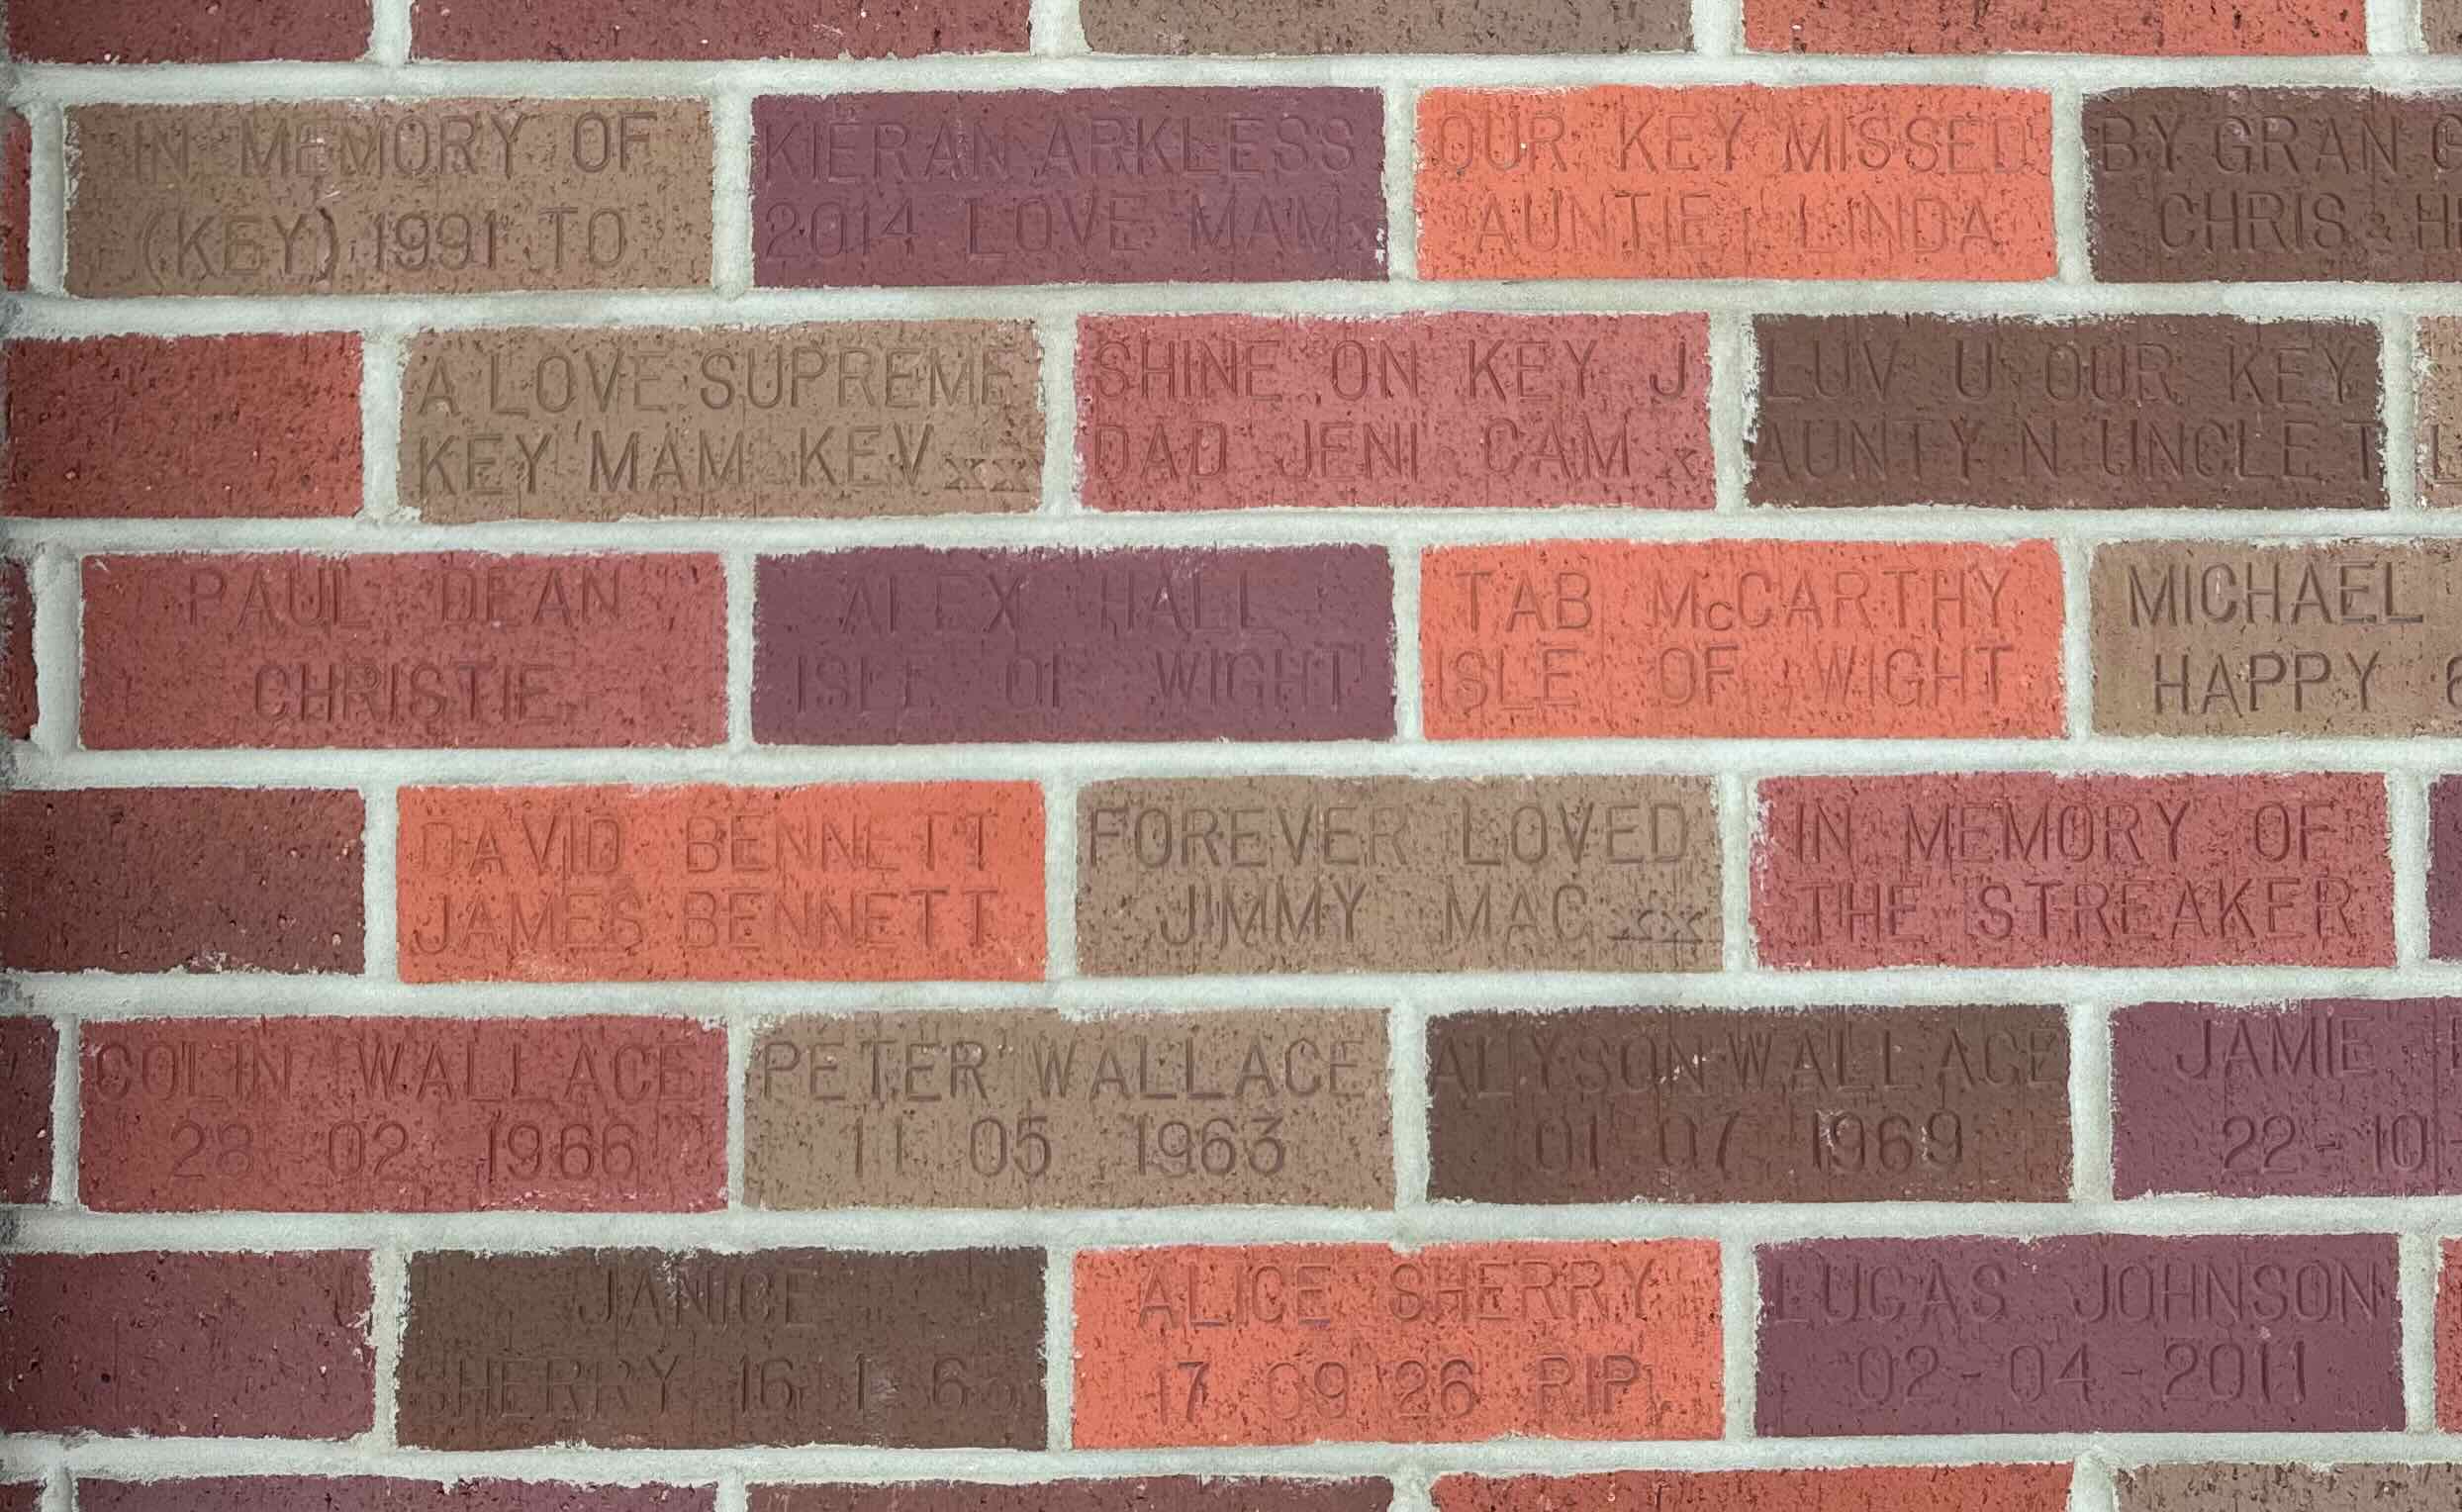 IN MEMORY OF
(KEY) 1991 TO
KIERAN ARKLESS
2014 LOVE MAM
OUR KEY MISSED
AUNTIE LINDA
BY GRAN
CHRIS & H
A LOVE SUPREME
KEY MAM KEV xx
SHINE ON KEY J
DAD JENI CAM x
LUV U OUR KEY
AUNTY N UNCLE T
PAUL DEAN
CHRISTIE
ALEX HALL
ISLE OF WIGHT
TAB McCARTHY
ISLE OF WIGHT
MICHAEL
HAPPY 6
DAVID BENNETT
JAMES BENNETT
FOREVER LOVED
JIMMY MAC xxx
IN MEMORY OF
THE STREAKER
COLIN WALLACE
28 02 1966
PETER WALLACE
11 05 1963
ALLYSON WALLACE
01 07 1969
JAMIE
22-10
JANICE
SHERRY 16 1 63
ALICE SHERRY
17 09 26 RIP
LUCAS JOHNSON
02-04-2011